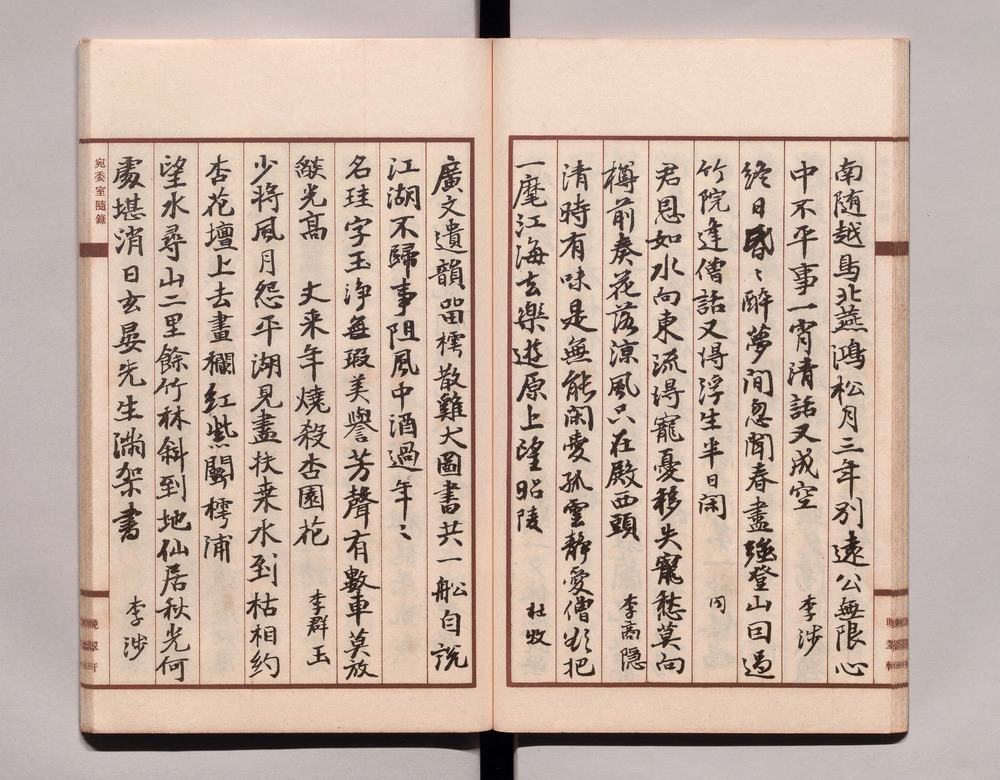 南隨越鳥北燕鴻松月三年別遠公無限心
中不平事一宵清話又成空
李涉
終日昏〻醉夢間忽聞春盡強登山因過
竹院逢僧話又得浮生半日閑
同
君恩如水向東流得寵憂移失寵愁莫向
樽前奏花落涼風只在殿西頭
李商隱
清時有味是無能閑愛孤雲靜愛僧欲把
一麾江海去樂遊原上望昭陵
杜牧
廣文遺韻留樗散雞犬圖書共一船自說
江湖不歸事阻風中酒過年〻
名珪字玉淨無瑕美譽芳聲有數車莫放
燄光高 丈來年燒殺杏園花
李群玉
少將風月怨平湖見盡扶來水到枯相約
杏花壇上去畫欄紅紫鬭樗蒲
望水尋山二里餘竹林斜到地仙居秋光何
處堪消日玄晏先生滿架書
李涉
宛委室隨錄
翠軒